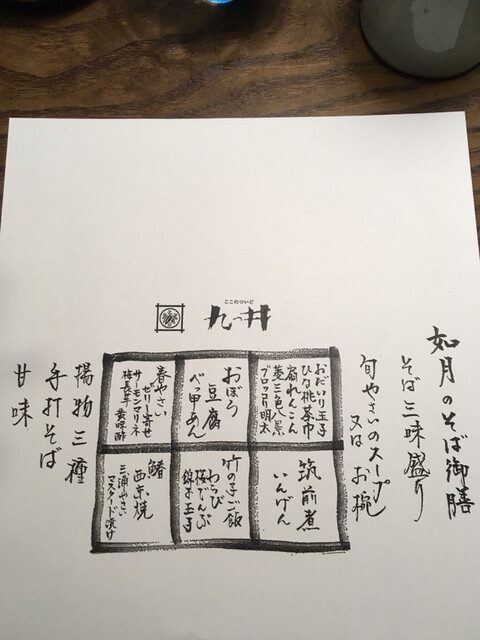 如月のそば御膳
そば三味盛り
旬やさいのスープ
又は お椀
おだいり玉子
ひな桃茶巾
扇れんこん
菱三色
ブロッコリ明太
筑前煮
いんげん
おぼろ
豆腐
べっ甲あん
竹の子ご飯
わらび
桜でんぶ
錦玉子
春やさい
ゼリー寄せ
サーモンマリネ
黄味酢
鰆
西京焼
三浦やさい
マスタード漬け
揚物三種
手打そば
甘味
ここのついど
九つ井